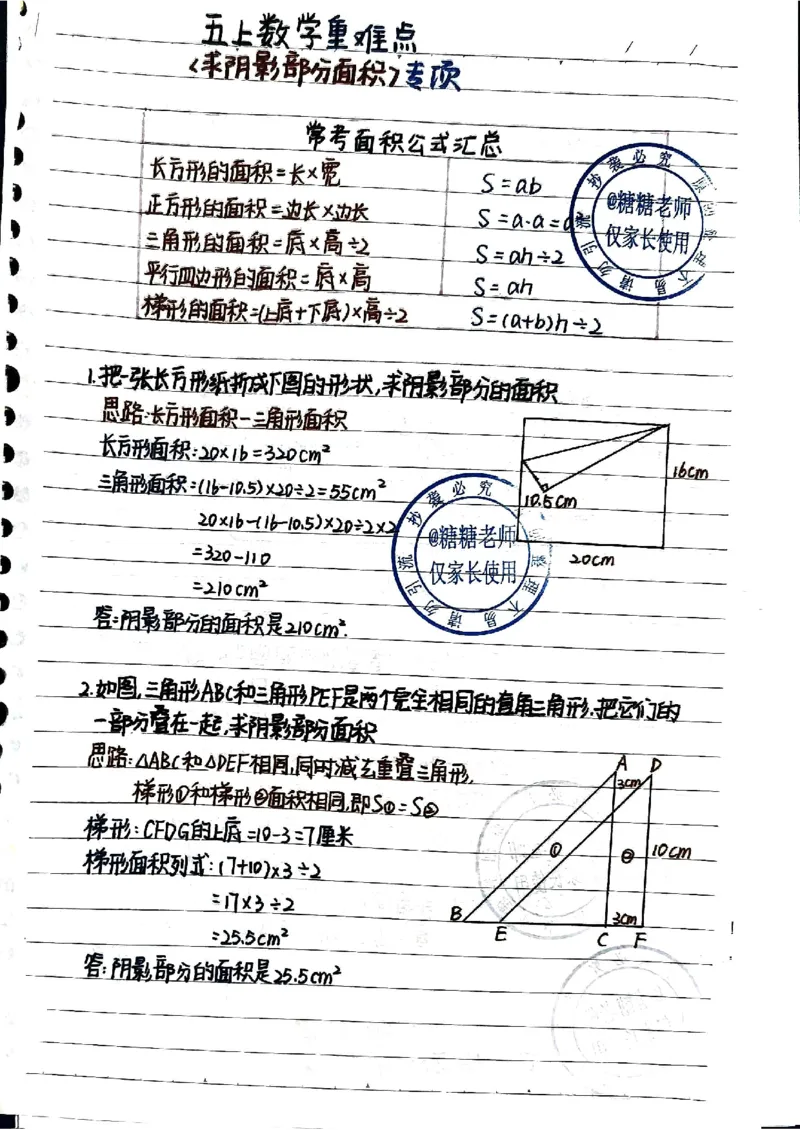 五上数学重难点
<求阴影部分面积>专项
常考面积公式汇总
长方形的面积=长×宽 S=ab
正方形的面积=边长×边长 S=a·a=a
三角形的面积=底×高÷2 S=ah÷2
平行四边形的面积=底×高 S=ah
梯形的面积=(上底+下底)×高÷2 S=(a+b)h÷2
@糖糖老师
仅家长使用
抄袭必究
请勿引流
1.把一张长方形纸折成下图的形状,求阴影部分的面积
思路:长方形面积-三角形面积
长方形面积:20×16=320cm²
三角形面积=(16-10.5)×20÷2=55cm²
20×16-(16-10.5)×20÷2×2
=320-110
=210cm²
答:阴影部分的面积是210cm².
10.5cm
16cm
20cm
@糖糖老师
仅家长使用
抄袭必究
请勿引流
2.如图,三角形ABC和三角形DEF是两个完全相同的直角三角形.把它们的
一部分叠在一起,求阴影部分面积
思路:△ABC和△DEF相同,同时减去重叠三角形,
梯形①和梯形②面积相同,即S①=S②
梯形:CFDG的上底=10-3=7厘米
梯形面积列式:(7+10)×3÷2
=17×3÷2
=25.5cm²
答:阴影部分的面积是25.5cm²
A D
3cm
① ② 10cm
B E 3cm C F